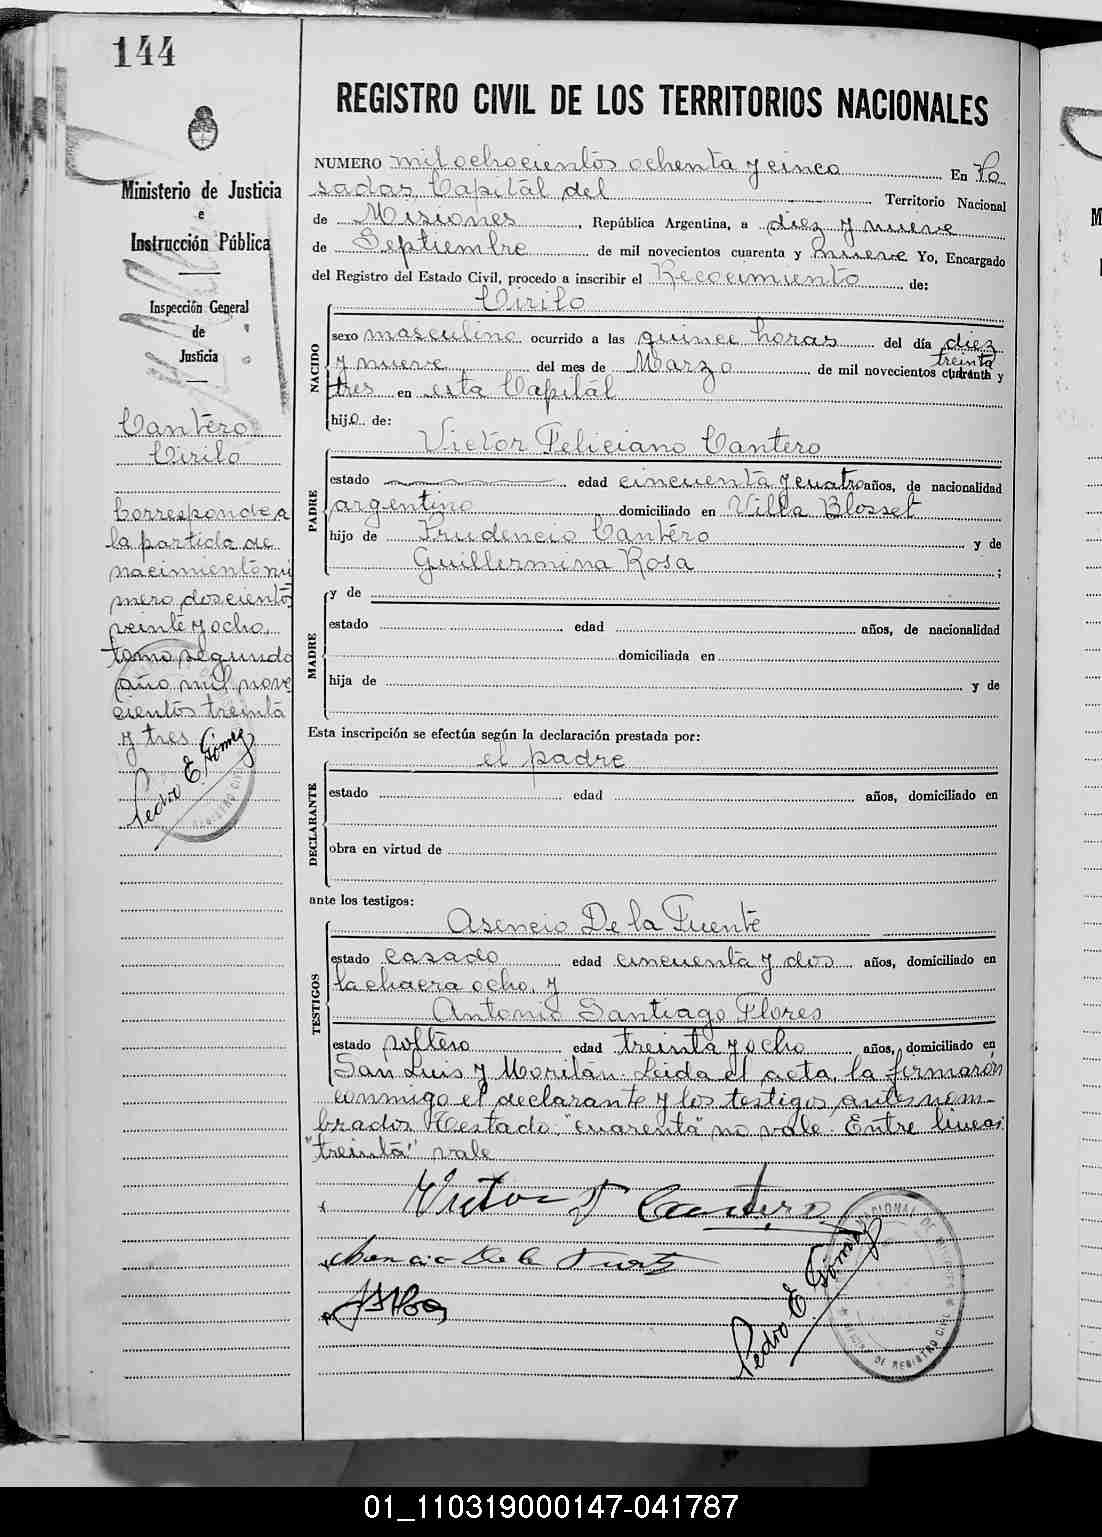 144
Ministerio de Justicia
e
Instrucción Pública
Inspección General
de
Justicia
Cantero
Cirilo
Corresponde a
la partida de
nacimiento nú
mero doscientos
veinte y ocho,
tomo segundo
año mil nove
cientos treinta
y tres
Pedro E. Gómez
REGISTRO CIVIL DE LOS TERRITORIOS NACIONALES
NUMERO mil ochocientos ochenta y cinco En Po
sadas Capital del Territorio Nacional
de Misiones, República Argentina, a diez y nueve
de Septiembre de mil novecientos cuarenta y nueve Yo, Encargado
del Registro del Estado Civil, procedo a inscribir el Recocimiento de:
Cirilo
NACIDO
sexo masculino ocurrido a las quince horas del día diez
treinta
y nueve del mes de Marzo de mil novecientos cuarenta y
tres en esta Capital
hijo de:
Victor Feliciano Cantero
PADRE
estado edad cincuenta y cuatro años, de nacionalidad
argentino domiciliado en Villa Blosset
hijo de Prudencio Cantero y de
Guillermina Rosa;
MADRE
y de
estado edad años, de nacionalidad
domiciliada en
hija de y de
Esta inscripción se efectúa según la declaración prestada por:
el padre
DECLARANTE
estado edad años, domiciliado en
obra en virtud de
ante los testigos:
Asencio De la Fuente
TESTIGOS
estado casado edad cincuenta y dos años, domiciliado en
la chacra ocho, y
Antonio Santiago Flores
estado soltero edad treinta y ocho años, domiciliado en
San Luis y Moritán. Leida el acta, la firmarón
conmigo el declarante y los testigos antes nom-
brados Testado: "cuarenta" no vale. Entre lineas
"treinta" vale
Victor F Cantero
Asencio De la Fuente
Pedro E. Gómez
01_110319000147-041787